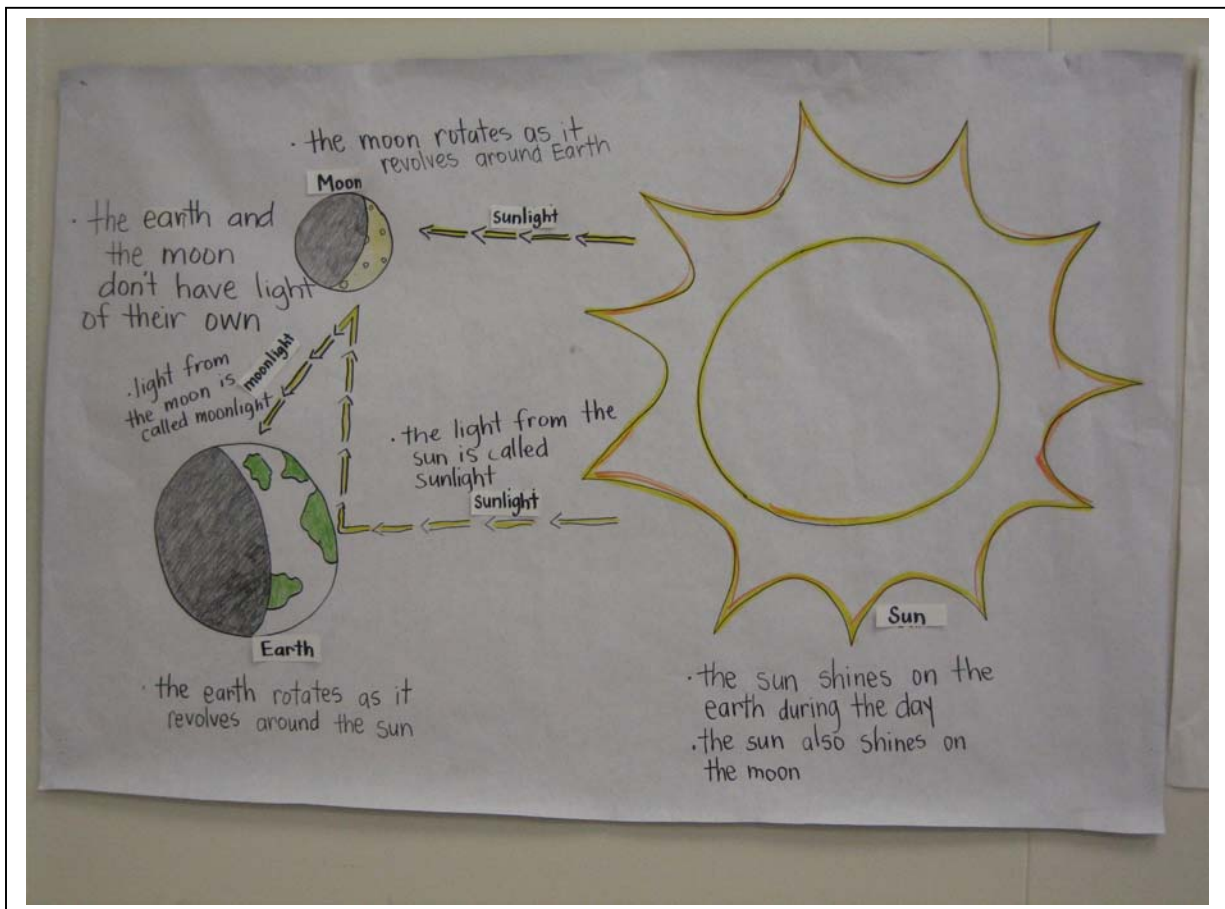 · the moon rotates as it
revolves around Earth
Moon
Sunlight
· the earth and
the moon
don't have light
of their own
moonlight
· light from
the moon is
called moonlight
· the light from the
sun is called
sunlight
Sunlight
Sun
Earth
· the earth rotates as it
revolves around the sun
· the sun shines on the
earth during the day
· the sun also shines on
the moon